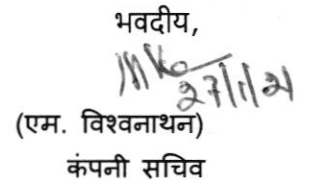 भवदीय,
27/1/21
(एम. विश्वनाथन)
कंपनी सचिव